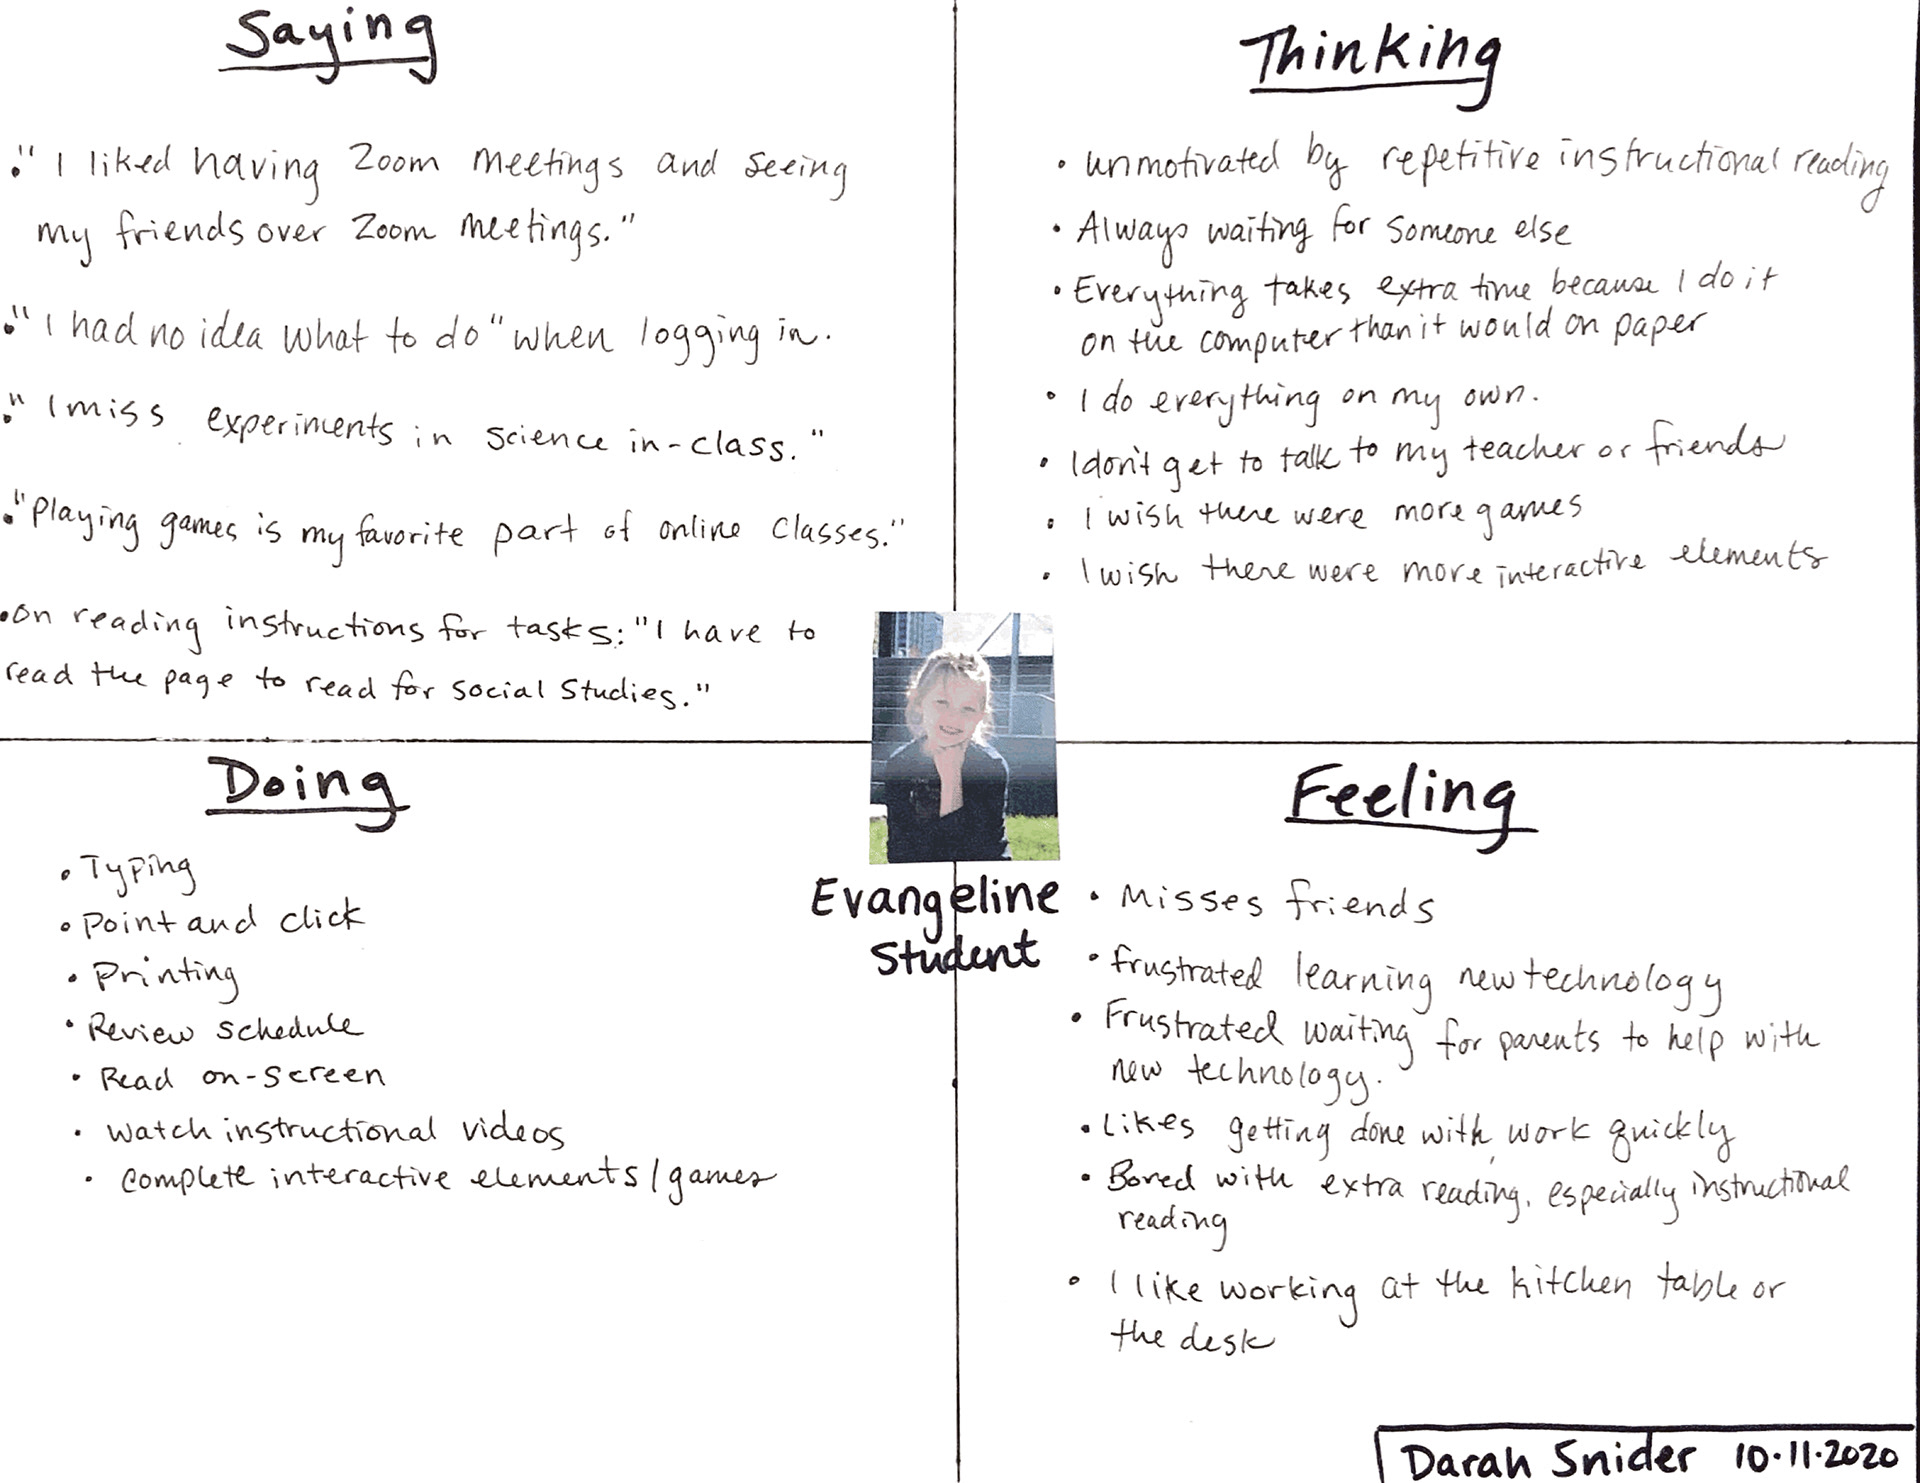 Saying
• "I liked having Zoom meetings and seeing
my friends over Zoom meetings."
• "I had no idea what to do" when logging in.
• "I miss experiments in science in-class."
• "Playing games is my favorite part of online classes."
• On reading instructions for tasks: "I have to
read the page to read for Social Studies."
Thinking
• unmotivated by repetitive instructional reading
• Always waiting for someone else
• Everything takes extra time because I do it
on the computer than it would on paper
• I do everything on my own.
• I don't get to talk to my teacher or friends
• I wish there were more games
• I wish there were more interactive elements
Evangeline
Student
Doing
• Typing
• Point and click
• Printing
• Review schedule
• Read on-screen
• watch instructional videos
• complete interactive elements/games
Feeling
• Misses friends
• frustrated learning new technology
• Frustrated waiting for parents to help with
new technology.
• Likes getting done with work quickly
• Bored with extra reading, especially instructional
reading
• I like working at the kitchen table or
the desk
Darah Snider 10.11.2020